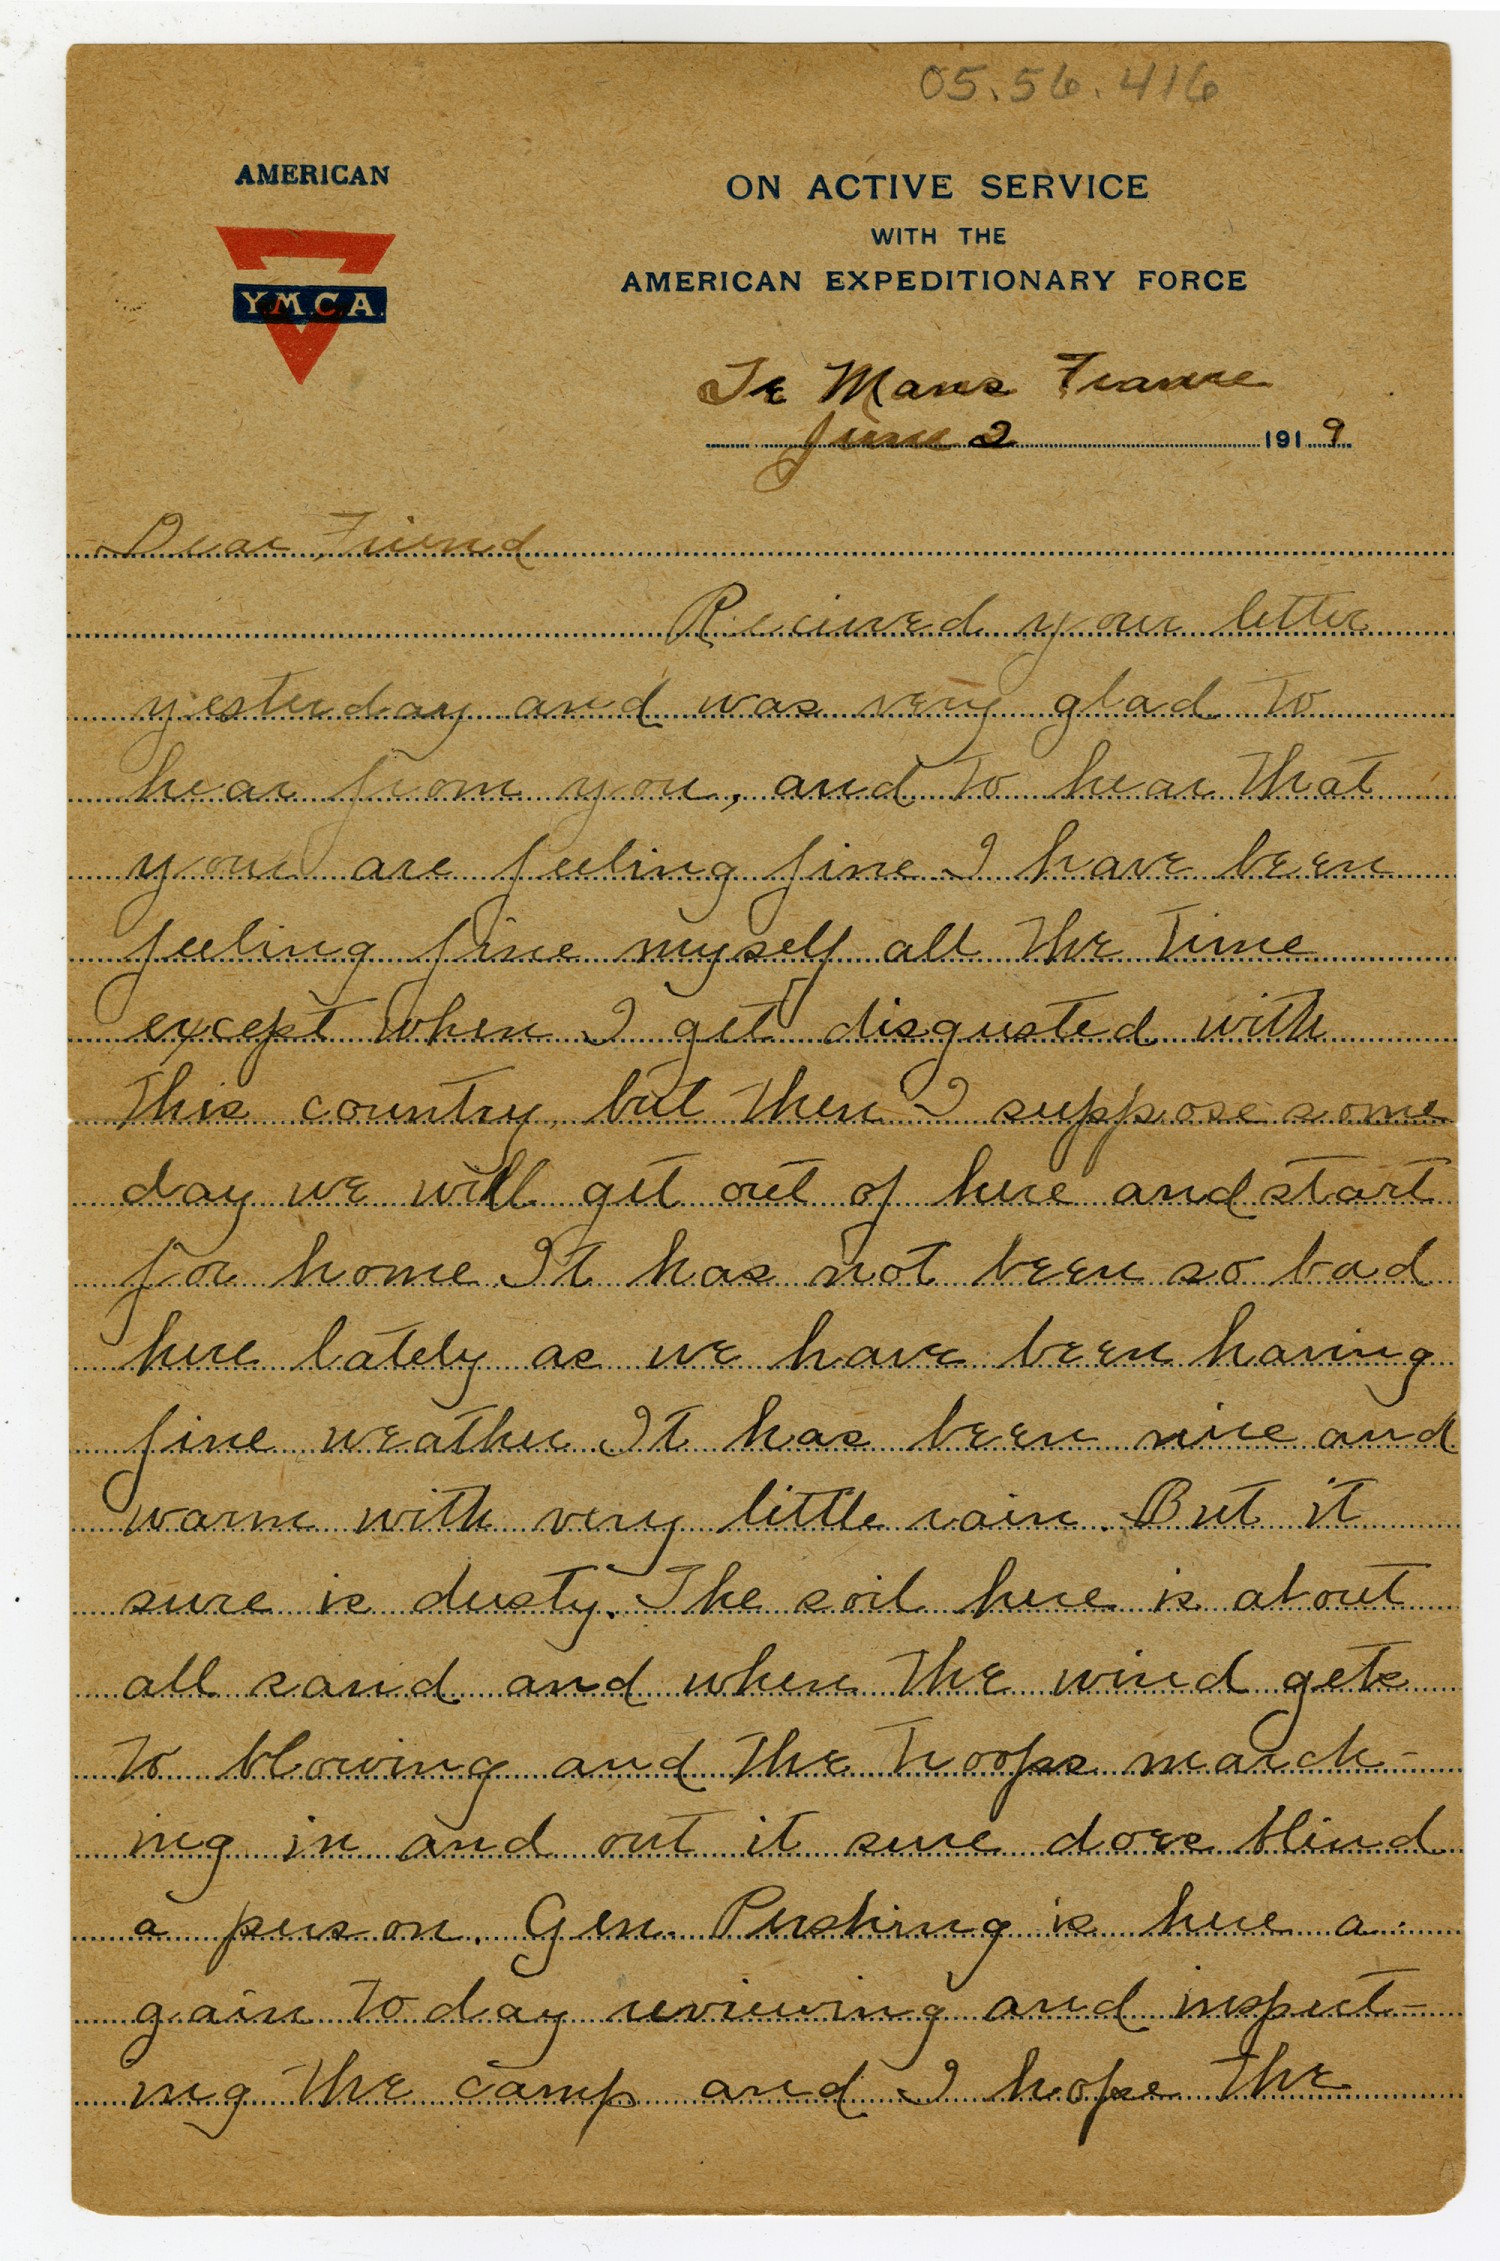 05.56.416
AMERICAN
Y.M.C.A.
ON ACTIVE SERVICE
WITH THE
AMERICAN EXPEDITIONARY FORCE
Le Mans France
June 2 1919
Dear Friend
Recieved your letter
yesterday and was very glad to
hear from you, and to hear that
your are feeling fine I have been
feeling fine myself all the time
except when I get disgusted with
this country, but then I suppose some
day we will get out of here and start
for home. It has not been so bad
here lately as we have been having
fine weather. It has been nice and
warm with very little rain. But it
sure is dusty. The soil here is about
all sand and when the wind gets
to blowing and the troops march-
ing in and out it sure does blind
a person. Gen. Pershing is here a-
gain today reviewing and inspect-
ing the camp and I hope the